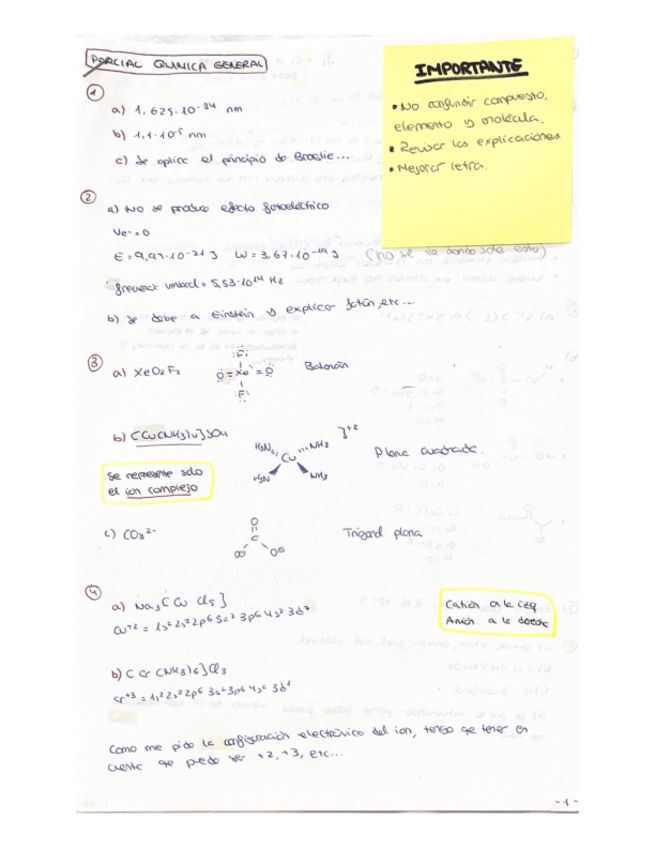 PARCIAL QUIMICA GENERAL
IMPORTANTE
• No confundir compuesto,
elemento y molécula.
• Revisar las explicaciones
• Mejorar letra.
1
a) 1,625·10⁻³⁴ nm
b) 1,1·10⁻⁵ nm
c) Se aplica el principio de Broglie...
2
a) No se produce efecto fotoeléctrico
Ve⁻=0
E = 9,93·10⁻²¹ J W = 3,67·10⁻¹⁹ J (no sé de donde sale esto)
frecuencia umbral = 5,53·10¹⁴ Hz
b) Se debe a Einstein y explicar fotón, etc...
3
a) XeO2F2
F
O=Xe=O
F
Balancín
b) [Cu(NH3)4]SO4
H3N NH3 ]+2
Cu
H3N NH3
Plana cuadrada.
Se representa solo
el ion complejo
c) CO3²⁻
O
C
Trigonal plana
4
a) Na3[Cu Cl5]
Cu+2 = 1s² 2s² 2p6 3s² 3p6 4s² 3d7
Catión a la izq
Anión a la derecha
b) [Cr(NH3)6]Cl3
Cr+3 = 1s² 2s² 2p6 3s² 3p6 4s² 3d1
Como me pide la configuración electrónica del ion, tengo que tener en
cuenta que puede ser +2, +3, etc...
-1-